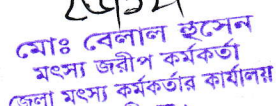 মোঃ বেলাল হুসেন
মৎস্য জরীপ কর্মকর্তা
জেলা মৎস্য কর্মকর্তার কার্যালয়